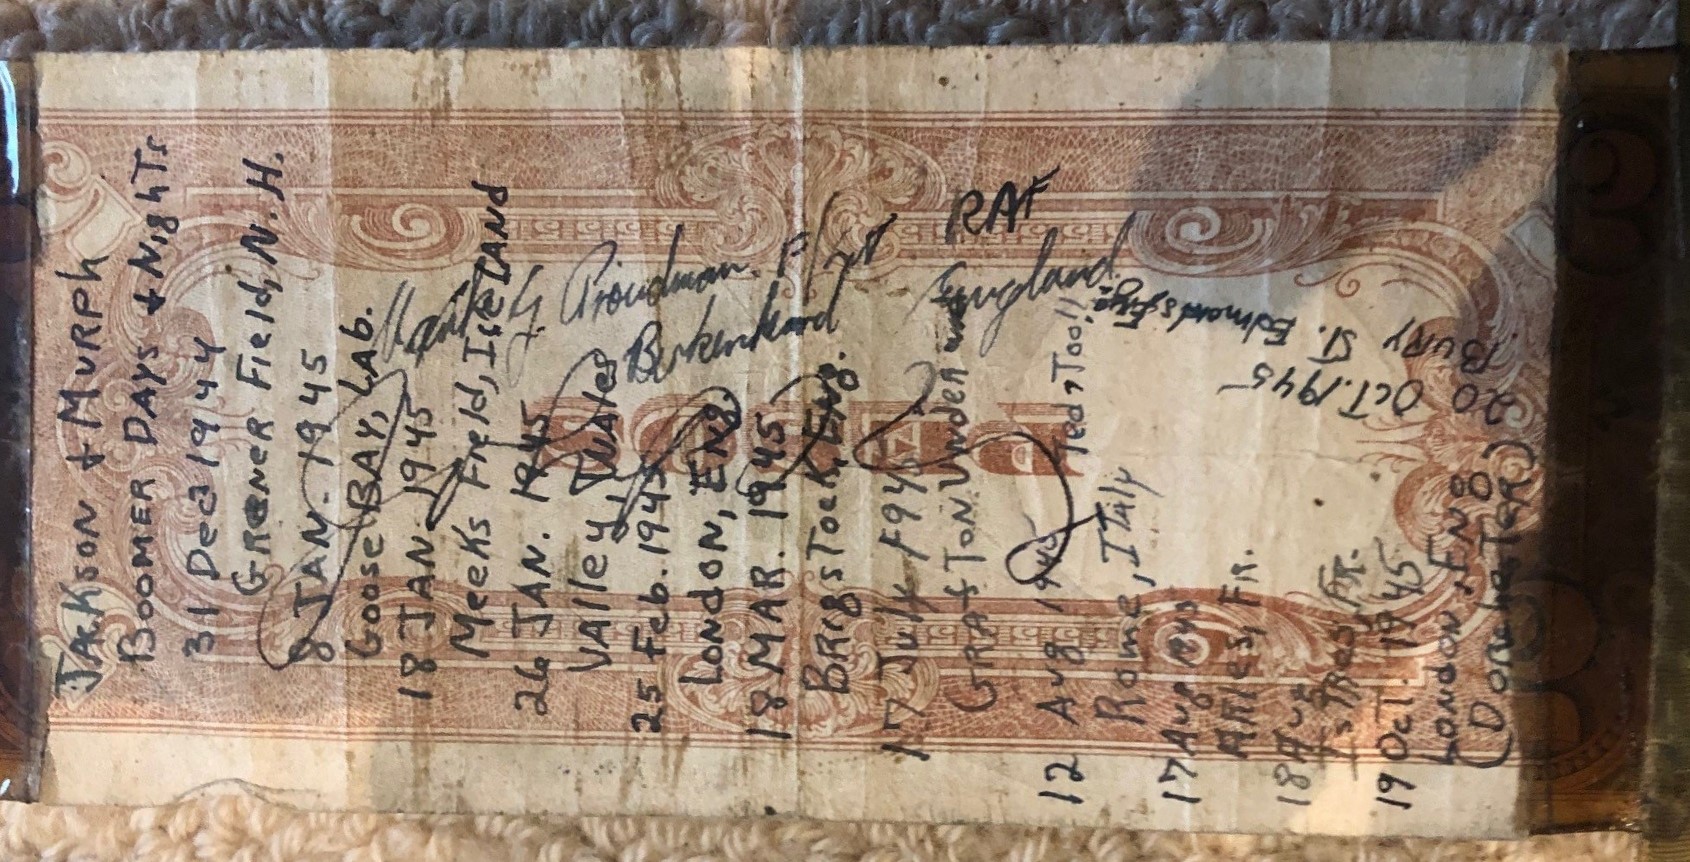 JACKSON + MURPH
BOOMER DAYS + NighTs
31 Dec 1944
GRENER Field, N.H.
8 JAN. 1945
Goose BAY, LAb.
18 JAN. 1945
Meeks Field, IceLAND
26 JAN. 1945
VAlley, WAles
25 Feb. 1945
LONDON, ENg.
18 MAR. 1945
BRigsTock, ENg.
17 July 1945
GRAfTON UNdeRwood
12 Aug 1945
Rome, ITAly
17 Aug 1945
ARles, FR.
18 Aug
IsTRes, FR.
19 OcT. 1945
LONDON, ENg
(DoRchesTeR)
20 OCT. 1945
BURY ST. Edmonds,
Proudman. F/Sgt RAF
Birkenhead
England.
Ted "Tool"
PESOS